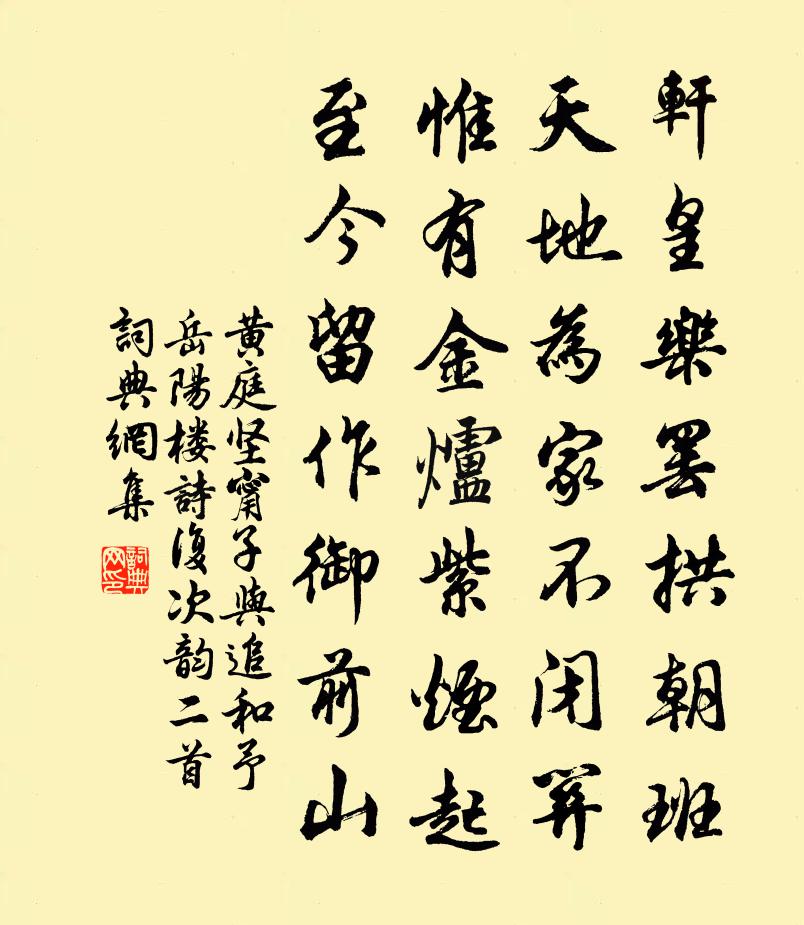 軒皇樂罢拱朝班
天地為家不闭関
惟有金爐紫煙起
至今留作御前山
黄庭坚甯子與追和予
岳陽楼詩復次韵二首
詞典網集
詞典
网印